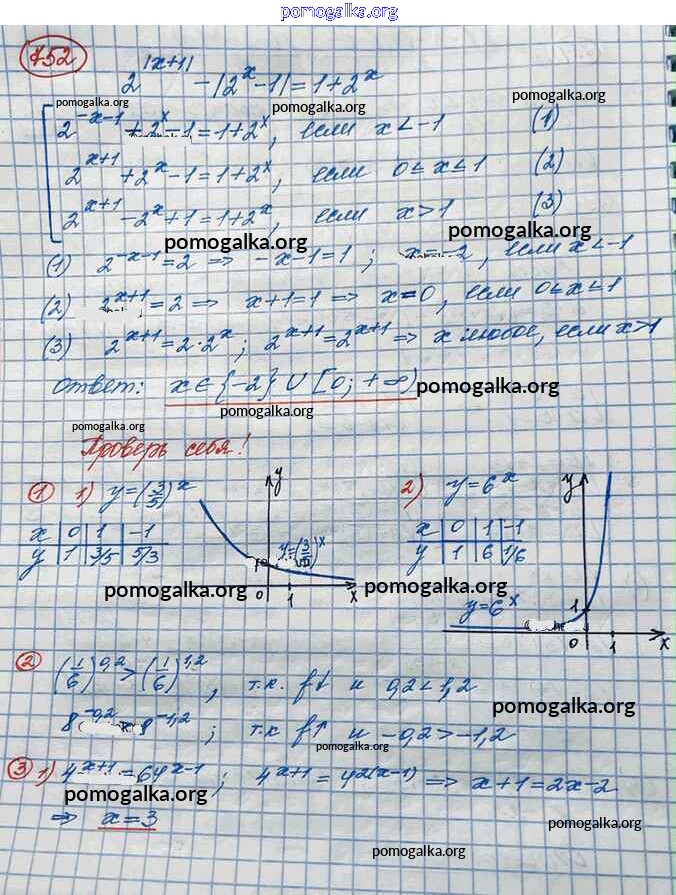 pomogalka.org
752
2^|x+1| - |2^x - 1| = 1 + 2^x
pomogalka.org pomogalka.org
2^-x-1 + 2^x - 1 = 1 + 2^x, если x < -1 (1)
2^x+1 + 2^x - 1 = 1 + 2^x, если 0 ≤ x ≤ 1 (2)
2^x+1 - 2^x + 1 = 1 + 2^x, если x > 1 (3)
pomogalka.org pomogalka.org
(1) 2^-x-1 = 2 ⇒ -x-1 = 1; x = -2, если x < -1
(2) 2^x+1 = 2 ⇒ x+1 = 1 ⇒ x = 0, если 0 ≤ x ≤ 1
(3) 2^x+1 = 2·2^x; 2^x+1 = 2^x+1 ⇒ x любое, если x > 1
ответ: x ∈ {-2} ∪ [0; +∞)
pomogalka.org
pomogalka.org
pomogalka.org
Проверь себя!
1 1) y = (3/5)^x
x 0 1 -1
y 1 3/5 5/3
y
y = (3/5)^x
0 1 x
2) y = 6^x
x 0 1 -1
y 1 6 1/6
y
y = 6^x
1
0 1 x
pomogalka.org pomogalka.org
2 (1/6)^0,2 > (1/6)^1,2, т.к. f↓ и 0,2 < 1,2
pomogalka.org
8^-0,2 > 8^-1,2; т.к f↑ и -0,2 > -1,2
pomogalka.org
3 1) 4^x+1 = 64^x-1; 4^x+1 = 4^2(x-1) ⇒ x+1 = 2x-2
pomogalka.org
⇒ x = 3
pomogalka.org
pomogalka.org